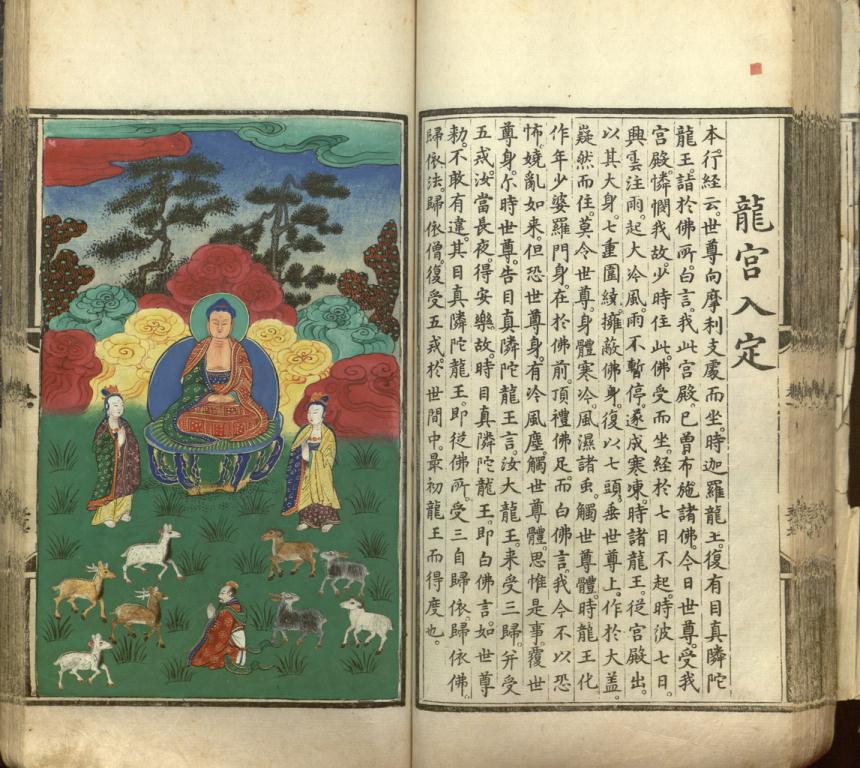 龍宮入定
本行經云。世尊向摩利支處而坐。時迦羅龍王。復有目真隣陀
龍王。詣於佛所。白言。我此宮殿。已曾布施諸佛。今日世尊。受我
宮殿。憐憫我故。少時住此。佛受而坐。經於七日不起。時波七日。
興雲注雨。起大冷風。雨不暫停。遂成寒凍。時諸龍王。從宮殿出。
以其大身。七重圍繞。擁蔽佛身。復以七頭。垂世尊上。作於大盖。
嶷然而住。莫令世尊。身體寒冷。風濕諸虫。觸世尊體。時龍王化
作年少婆羅門身。在於佛前。頂禮佛足。而白佛言。我今不以恐
怖嬈亂如來。但恐世尊身。有冷風塵。觸世尊體。思惟是事。覆世
尊身。尒時世尊。告目真隣陀龍王言。汝大龍王。来受三歸。并受
五戒。汝當長夜。得安樂故。時目真隣陀龍王。即白佛言。如世尊
勑。不敢有違。其目真隣陀龍王。即從佛所。受三自歸依。歸依佛。
歸依法。歸依僧。復受五戒。於世間中。最初龍王而得度也。